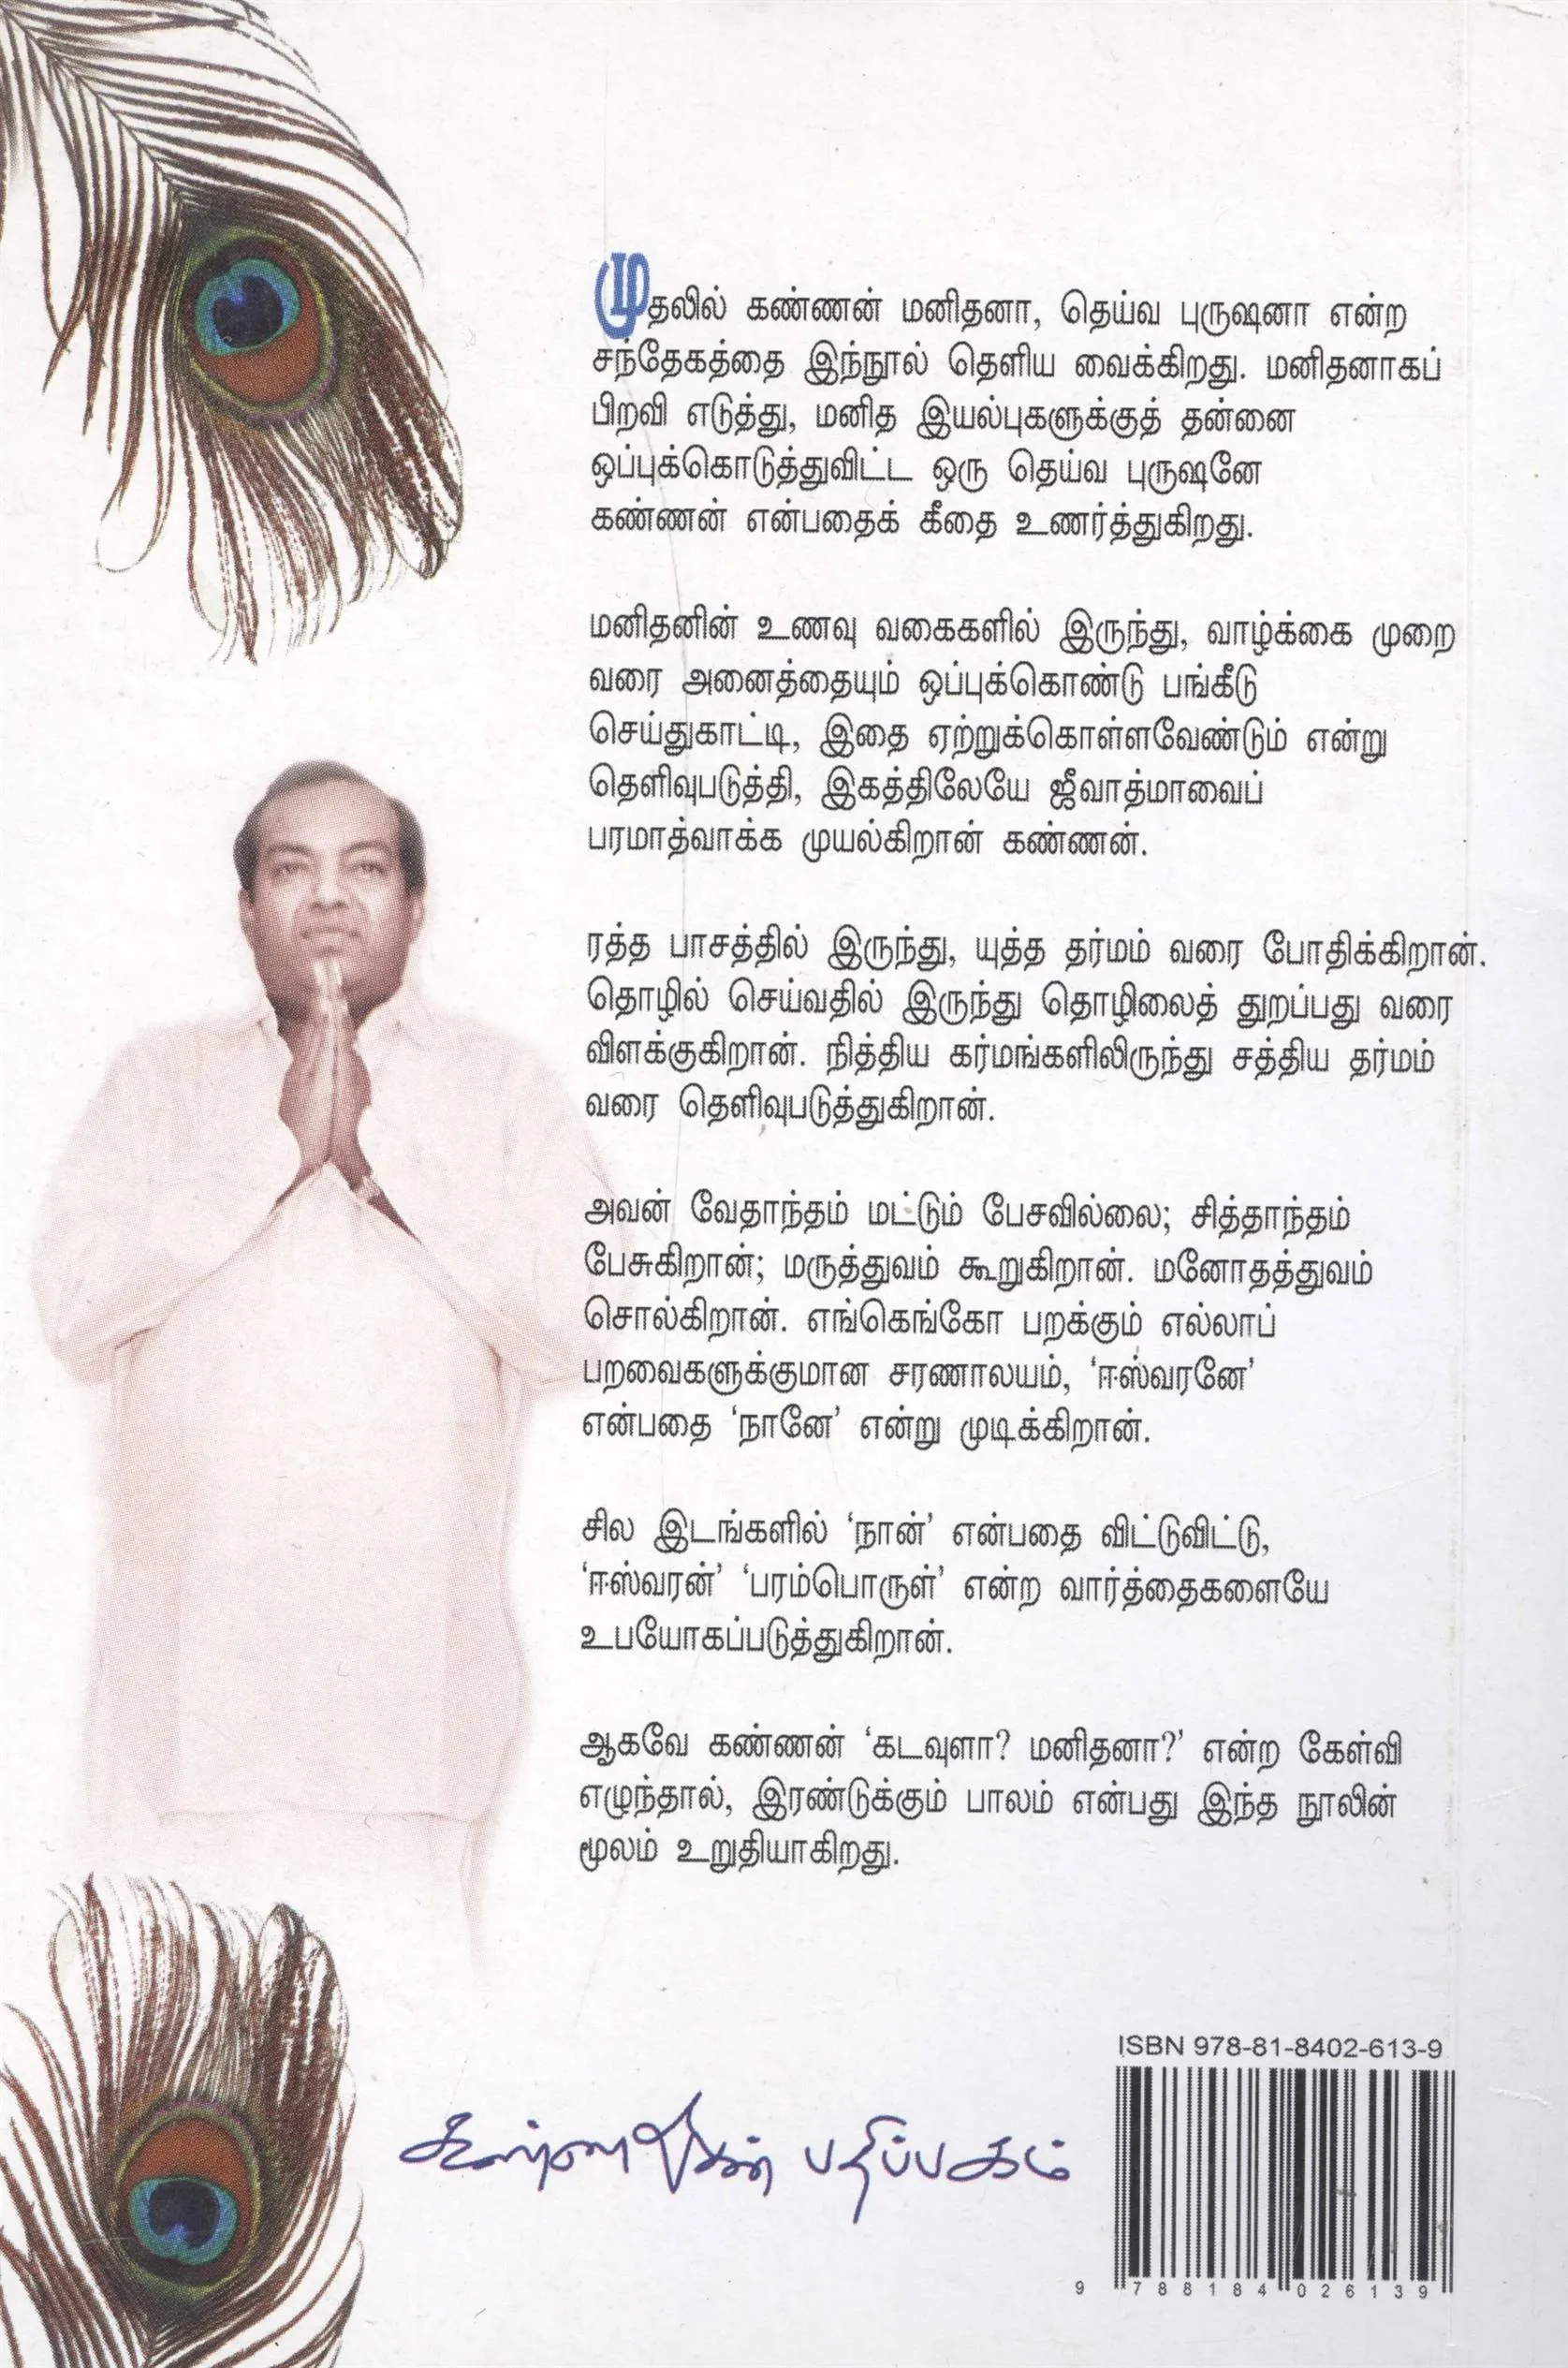 முதலில் கண்ணன் மனிதனா, தெய்வ புருஷனா என்ற
சந்தேகத்தை இந்நூல் தெளிய வைக்கிறது. மனிதனாகப்
பிறவி எடுத்து, மனித இயல்புகளுக்குத் தன்னை
ஒப்புக்கொடுத்துவிட்ட ஒரு தெய்வ புருஷனே
கண்ணன் என்பதைக் கீதை உணர்த்துகிறது.
மனிதனின் உணவு வகைகளில் இருந்து, வாழ்க்கை முறை
வரை அனைத்தையும் ஒப்புக்கொண்டு பங்கீடு
செய்துகாட்டி, இதை ஏற்றுக்கொள்ளவேண்டும் என்று
தெளிவுபடுத்தி, இகத்திலேயே ஜீவாத்மாவைப்
பரமாத்வாக்க முயல்கிறான் கண்ணன்.
ரத்த பாசத்தில் இருந்து, யுத்த தர்மம் வரை போதிக்கிறான்.
தொழில் செய்வதில் இருந்து தொழிலைத் துறப்பது வரை
விளக்குகிறான். நித்திய கர்மங்களிலிருந்து சத்திய தர்மம்
வரை தெளிவுபடுத்துகிறான்.
அவன் வேதாந்தம் மட்டும் பேசவில்லை; சித்தாந்தம்
பேசுகிறான்; மருத்துவம் கூறுகிறான். மனோதத்துவம்
சொல்கிறான். எங்கெங்கோ பறக்கும் எல்லாப்
பறவைகளுக்குமான சரணாலயம், ‘ஈஸ்வரனே’
என்பதை ‘நானே’ என்று முடிக்கிறான்.
சில இடங்களில் ‘நான்’ என்பதை விட்டுவிட்டு,
‘ஈஸ்வரன்’ ‘பரம்பொருள்’ என்ற வார்த்தைகளையே
உபயோகப்படுத்துகிறான்.
ஆகவே கண்ணன் ‘கடவுளா? மனிதனா?’ என்ற கேள்வி
எழுந்தால், இரண்டுக்கும் பாலம் என்பது இந்த நூலின்
மூலம் உறுதியாகிறது.
ISBN 978-81-8402-613-9
கண்ணதாசன் பதிப்பகம்
9 788184 026139